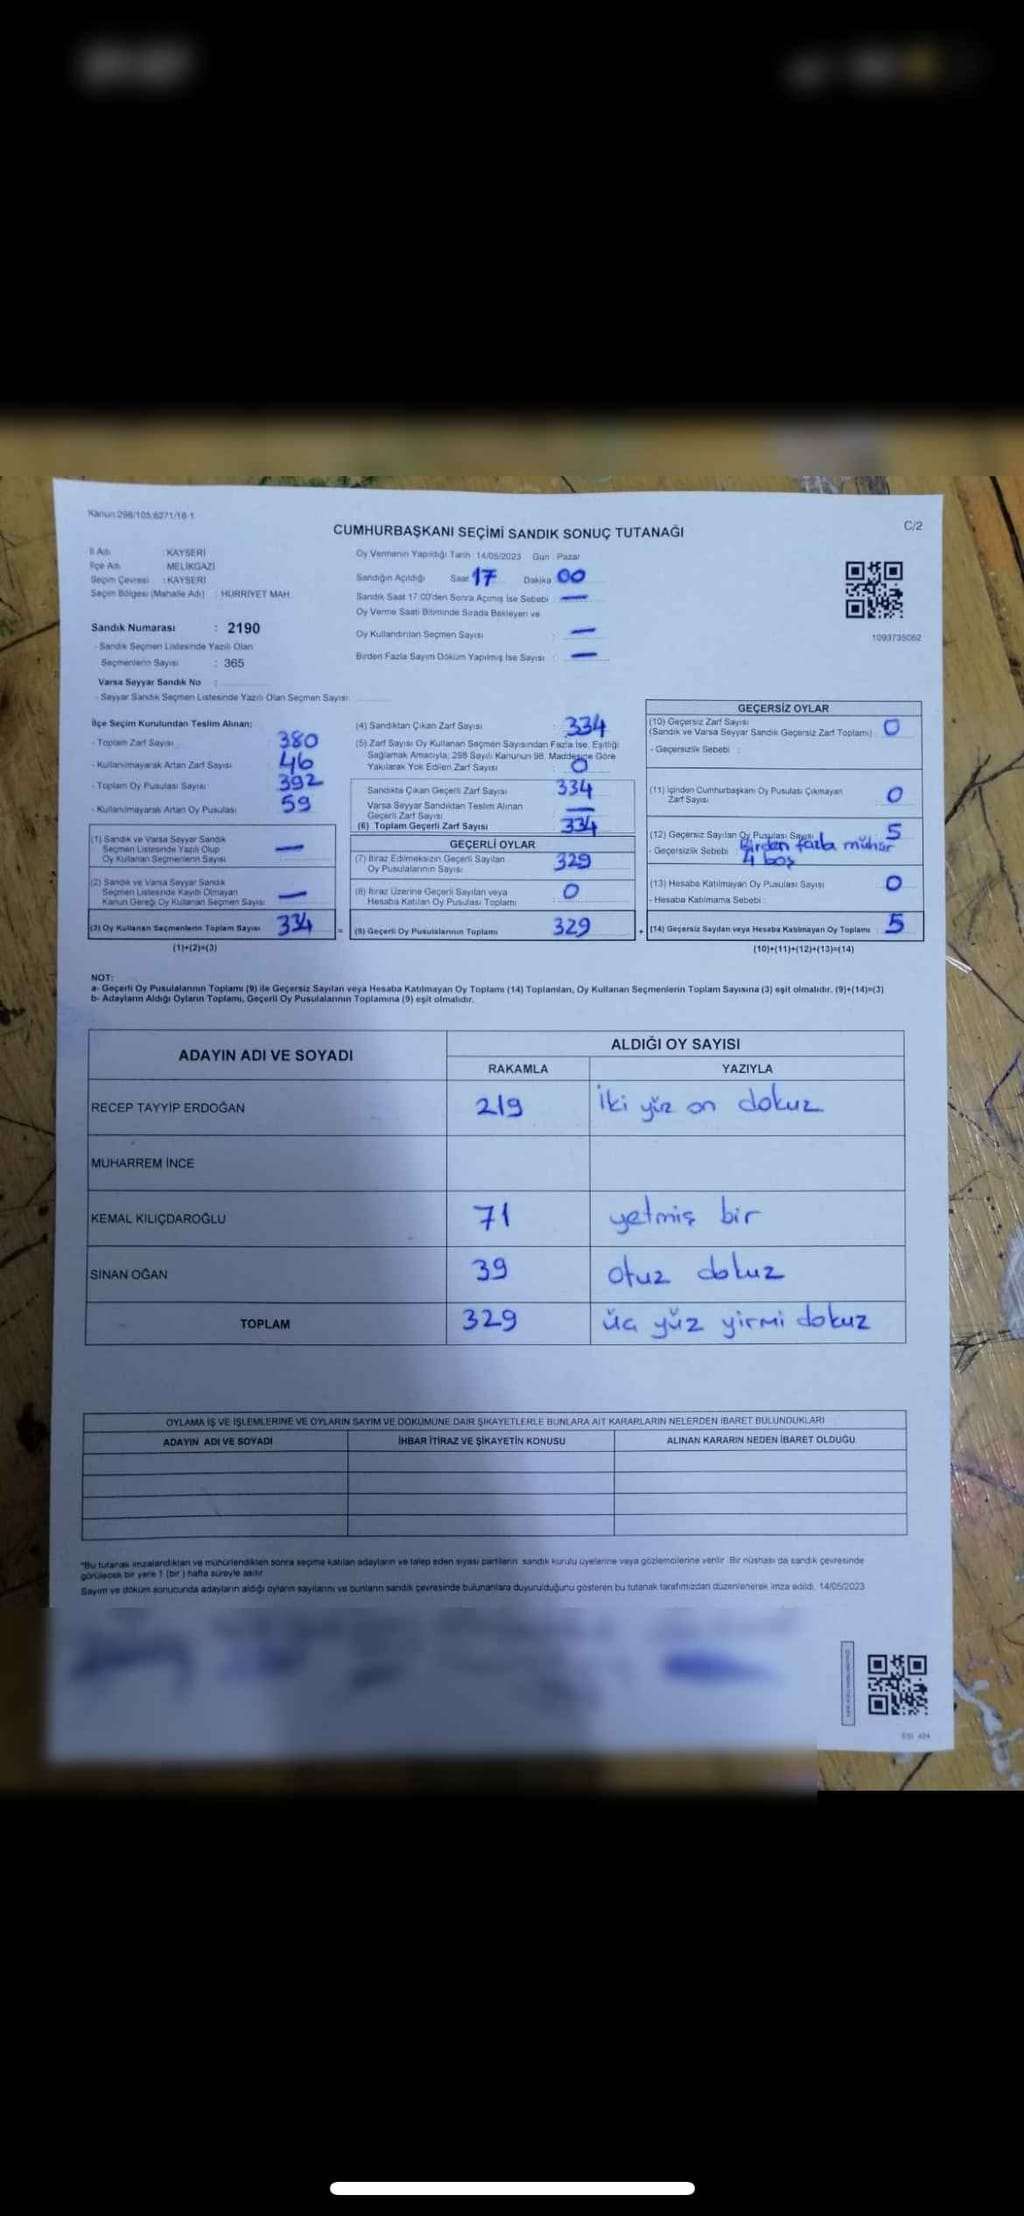 Kanun:298/105,6271/16-1
CUMHURBAŞKANI SEÇİMİ SANDIK SONUÇ TUTANAĞI
C/2
İl Adı : KAYSERİ
İlçe Adı : MELİKGAZİ
Seçim Çevresi : KAYSERİ
Seçim Bölgesi (Mahalle Adı) : HÜRRİYET MAH.
Sandık Numarası : 2190
- Sandık Seçmen Listesinde Yazılı Olan
Seçmenlerin Sayısı : 365
Varsa Seyyar Sandık No :
- Seyyar Sandık Seçmen Listesinde Yazılı Olan Seçmen Sayısı:
Oy Vermenin Yapıldığı Tarih : 14/05/2023 Gün : Pazar
Sandığın Açıldığı Saat 17 Dakika 00
Sandık Saat 17:00'den Sonra Açılmış İse Sebebi : —
Oy Verme Saati Bitiminde Sırada Bekleyen ve
Oy Kullandırılan Seçmen Sayısı : —
Birden Fazla Sayım Döküm Yapılmış İse Sayısı : —
1093735062
İlçe Seçim Kurulundan Teslim Alınan:
- Toplam Zarf Sayısı 380
- Kullanılmayarak Artan Zarf Sayısı 46
- Toplam Oy Pusulası Sayısı 392
- Kullanılmayarak Artan Oy Pusulası 59
(1) Sandık ve Varsa Seyyar Sandık
Seçmen Listesinde Yazılı Olup
Oy Kullanan Seçmenlerin Sayısı —
(2) Sandık ve Varsa Seyyar Sandık
Seçmen Listesinde Kayıtlı Olmayan
Kanun Gereği Oy Kullanan Seçmen Sayısı —
(3) Oy Kullanan Seçmenlerin Toplam Sayısı 334
(1)+(2)=(3)
(4) Sandıktan Çıkan Zarf Sayısı : 334
(5) Zarf Sayısı Oy Kullanan Seçmen Sayısından Fazla İse, Eşitliği
Sağlamak Amacıyla, 298 Sayılı Kanunun 98. Maddesine Göre
Yakılarak Yok Edilen Zarf Sayısı : 0
Sandıkta Çıkan Geçerli Zarf Sayısı 334
Varsa Seyyar Sandıktan Teslim Alınan
Geçerli Zarf Sayısı —
(6) Toplam Geçerli Zarf Sayısı 334
GEÇERLİ OYLAR
(7) İtiraz Edilmeksizin Geçerli Sayılan
Oy Pusulalarının Sayısı 329
(8) İtiraz Üzerine Geçerli Sayılan veya
Hesaba Katılan Oy Pusulası Toplamı 0
= (9) Geçerli Oy Pusulalarının Toplamı 329
GEÇERSİZ OYLAR
(10) Geçersiz Zarf Sayısı
(Sandık ve Varsa Seyyar Sandık Geçersiz Zarf Toplamı) 0
- Geçersizlik Sebebi :
(11) İçinden Cumhurbaşkanı Oy Pusulası Çıkmayan
Zarf Sayısı 0
(12) Geçersiz Sayılan Oy Pusulası Sayısı 5
- Geçersizlik Sebebi : Birden fazla mühür
4 boş
(13) Hesaba Katılmayan Oy Pusulası Sayısı 0
- Hesaba Katılmama Sebebi :
+ (14) Geçersiz Sayılan veya Hesaba Katılmayan Oy Toplamı 5
(10)+(11)+(12)+(13)=(14)
NOT:
a- Geçerli Oy Pusulalarının Toplamı (9) ile Geçersiz Sayılan veya Hesaba Katılmayan Oy Toplamı (14) Toplamları, Oy Kullanan Seçmenlerin Toplam Sayısına (3) eşit olmalıdır. (9)+(14)=(3)
b- Adayların Aldığı Oyların Toplamı, Geçerli Oy Pusulalarının Toplamına (9) eşit olmalıdır.
ADAYIN ADI VE SOYADI ALDIĞI OY SAYISI
RAKAMLA YAZIYLA
RECEP TAYYİP ERDOĞAN 219 İki yüz on dokuz
MUHARREM İNCE
KEMAL KILIÇDAROĞLU 71 yetmiş bir
SİNAN OĞAN 39 otuz dokuz
TOPLAM 329 üç yüz yirmi dokuz
OYLAMA İŞ VE İŞLEMLERİNE VE OYLARIN SAYIM VE DÖKÜMÜNE DAİR ŞİKAYETLERLE BUNLARA AİT KARARLARIN NELERDEN İBARET BULUNDUKLARI
ADAYIN ADI VE SOYADI İHBAR İTİRAZ VE ŞİKAYETİN KONUSU ALINAN KARARIN NEDEN İBARET OLDUĞU
*Bu tutanak imzalandıktan ve mühürlendikten sonra seçime katılan adayların ve talep eden siyasi partilerin sandık kurulu üyelerine veya gözlemcilerine verilir. Bir nüshası da sandık çevresinde
görülecek bir yere 1 (bir ) hafta süreyle asılır.
Sayım ve döküm sonucunda adayların aldığı oyların sayılarını ve bunların sandık çevresinde bulunanlara duyurulduğunu gösteren bu tutanak tarafımızdan düzenlenerek imza edildi. 14/05/2023